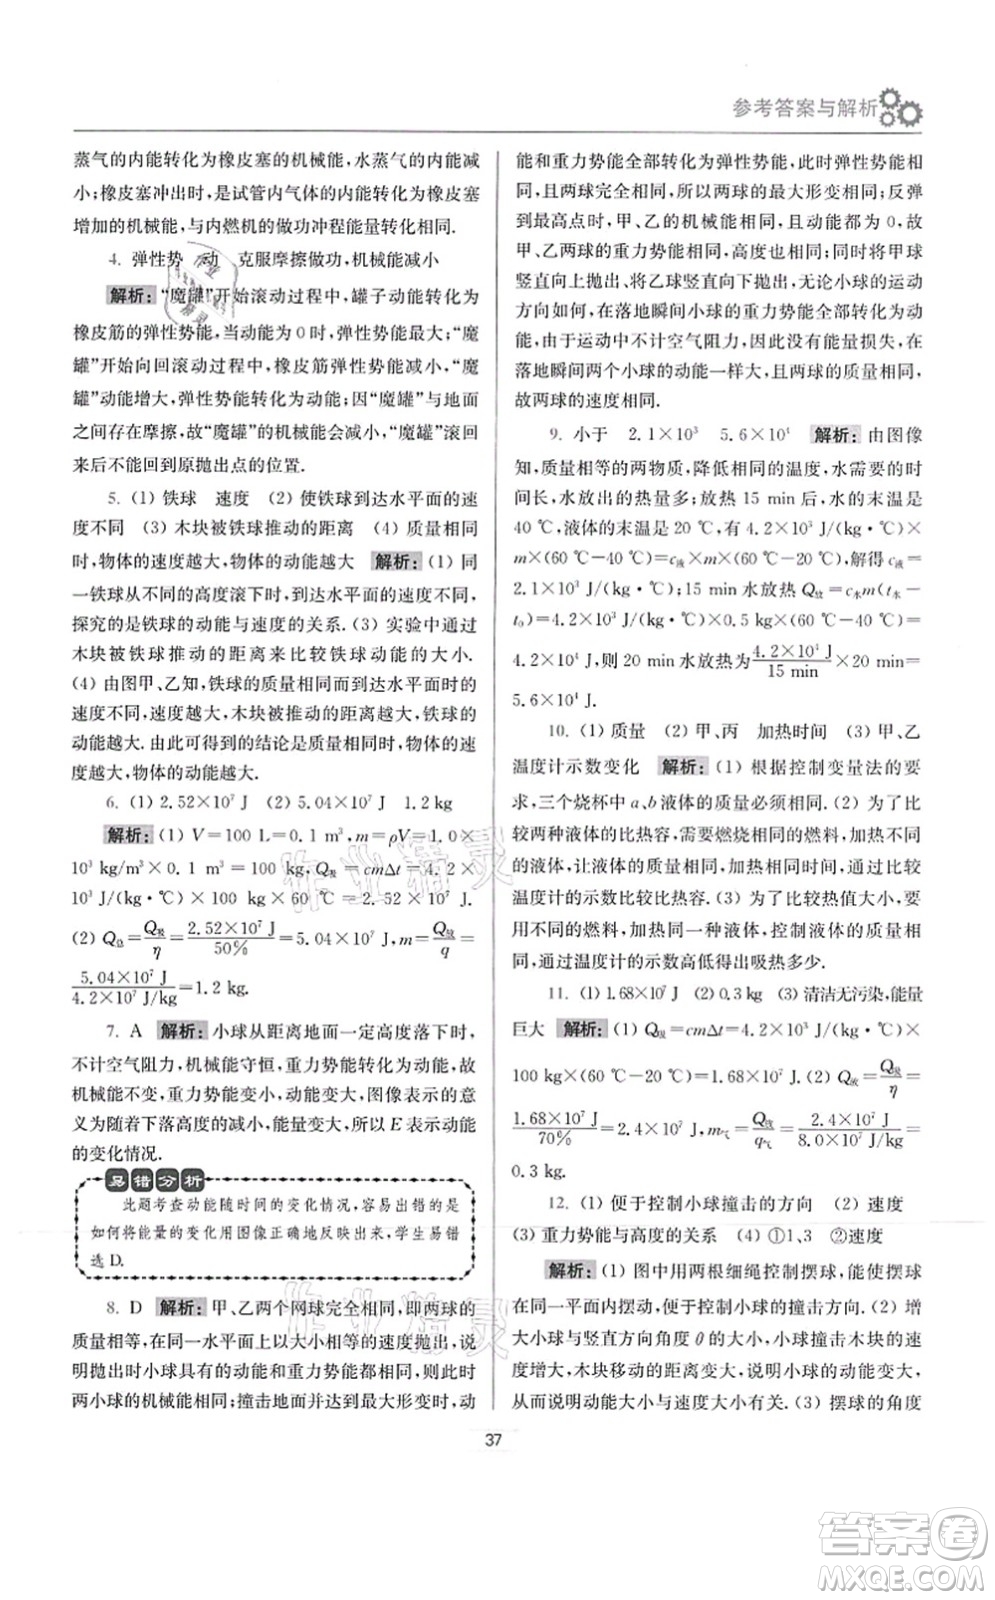 参考答案与解析
蒸气的内能转化为橡皮塞的机械能,水蒸气的内能减
小;橡皮塞冲出时,是试管内气体的内能转化为橡皮塞
增加的机械能,与内燃机的做功冲程能量转化相同.
4. 弹性势 动 克服摩擦做功,机械能减小
解析:“魔罐”开始滚动过程中,罐子动能转化为
橡皮筋的弹性势能,当动能为0时,弹性势能最大;“魔
罐”开始向回滚动过程中,橡皮筋弹性势能减小,“魔
罐”动能增大,弹性势能转化为动能;因“魔罐”与地面
之间存在摩擦,故“魔罐”的机械能减小,“魔罐”滚回
来后不能回到原抛出点的位置.
5. (1) 铁球 速度 (2) 使铁球到达水平面的速
度不同 (3) 木块被铁球推动的距离 (4) 质量相同
时,物体的速度越大,物体的动能越大 解析:(1) 同
一铁球从不同的高度滚下时,到达水平面的速度不同,
探究的是铁球的动能与速度的关系.(3) 实验中通过
木块被铁球推动的距离来比较铁球动能的大小.
(4) 由图甲、乙知,铁球的质量相同,到达水平面时的
速度不同,速度越大,木块被推动的距离越大,铁球的
动能越大.由此可以得到的结论是质量相同时,物体的
速度越大,物体的动能越大.
6. (1) 2.52×10⁷ J (2) 5.04×10⁷ J 1.2 kg
解析:(1) V=100 L=0.1 m³,m=ρV=1.0×
10³ kg/m³×0.1 m³=100 kg,Q吸=cmΔt=4.2×
10³ J/(kg·℃)×100 kg×60 ℃=2.52×10⁷ J.
(2) Q总=Q吸/η=2.52×10⁷ J/50%=5.04×10⁷ J,m=Q放/q=
5.04×10⁷ J/4.2×10⁷ J/kg=1.2 kg.
7. A 解析:小球从距离地面一定高度落下时,
不计空气阻力,机械能守恒,重力势能转化为动能,故
机械能不变,重力势能变小,动能变大,图像表示的意
义为随着下落高度的减小,能量变大,所以E表示动能
的变化情况.
易错分析
此题考查动能随时间的变化情况,容易出错的是
如何将能量的变化用图像正确地反映出来,学生易错
选D.
8. D 解析:甲、乙两个网球完全相同,即两球的
质量相等,在同一水平面上以大小相等的速度抛出,说
明抛出时小球具有的动能和重力势能都相同,所以此时
两小球的机械能相同;撞击地面到最大形变时,动
能和重力势能全部转化为弹性势能,此时弹性势能相
同,且两球完全相同,所以两球的最大形变相同;反弹
到最高点时,甲、乙的机械能相同,且动能都为0,故
甲、乙两球的重力势能相同,高度也相同;所以将甲球
竖直向上抛出、将乙球竖直向下抛出,无论小球运动方
向如何,在落地瞬间小球的重力势能全部转化为动
能,由于运动中不计空气阻力,所以没有能量损失,在
落地瞬间两个小球的动能一样大,且两球的质量相同,
故两球的速度相同.
9. 小于 2.1×10³ 5.6×10⁴ 解析:由图像
知,质量相等的两物质,降低相同的温度,水需要的时
间长,水放出的热量多;放热15 min后,水的末温为
40 ℃,液体的末温是20 ℃,有4.2×10³ J/(kg·℃)
×m×(60 ℃-40 ℃)=c液×m×(60 ℃-20 ℃),解得c液=
2.1×10³ J/(kg·℃);15 min水放热Q放=c水m(t水-
t₀)=4.2×10³ J/(kg·℃)×0.5 kg×(60 ℃-40 ℃)=
4.2×10⁴ J,则20 min水放热为4.2×10⁴ J/15 min×20 min=
5.6×10⁴ J.
10. (1) 质量 (2) 甲、丙 加热时间 (3) 甲、乙
温度计示数变化 解析:(1) 根据控制变量法的要
求,三个烧杯中a、b液体的质量必须相同.(2) 为了比
较两种液体的比热容,需要燃烧相同的燃料,加热不同
的液体,让液体的质量相同、加热时间相同,通过比较
温度计的示数比较比热容.(3) 为了比较热值大小,要
用不同的燃料,加热同一种液体,控制液体的质量相
同,通过温度计的示数高低得出吸热多少.
11. (1) 1.68×10⁷ J (2) 0.3 kg (3) 清洁无污染,能量
巨大 解析:(1) Q吸=cmΔt=4.2×10³ J/(kg·℃)×
100 kg×(60 ℃-20 ℃)=1.68×10⁷ J.(2) Q放=Q吸/η=
1.68×10⁷ J/70%=2.4×10⁷ J,m气=Q放/q气=2.4×10⁷ J/8.0×10⁷ J/kg=
0.3 kg.
12. (1) 便于控制小球撞击的方向 (2) 速度
(3) 重力势能与高度的关系 (4) ①1、3 ②速度
解析:(1) 图中用两根细绳控制摆球,能使摆球
在同一平面内摆动,便于控制小球的撞击方向.(2) 增
大小球与竖直方向角度θ的大小,小球撞击木块的速
度增大,木块移动的距离变大,说明小球的动能变大,
从而说明动能大小与速度大小有关.(3) 摆球的角度
37
作业精灵
作业精灵
答案卷
MXQE.COM